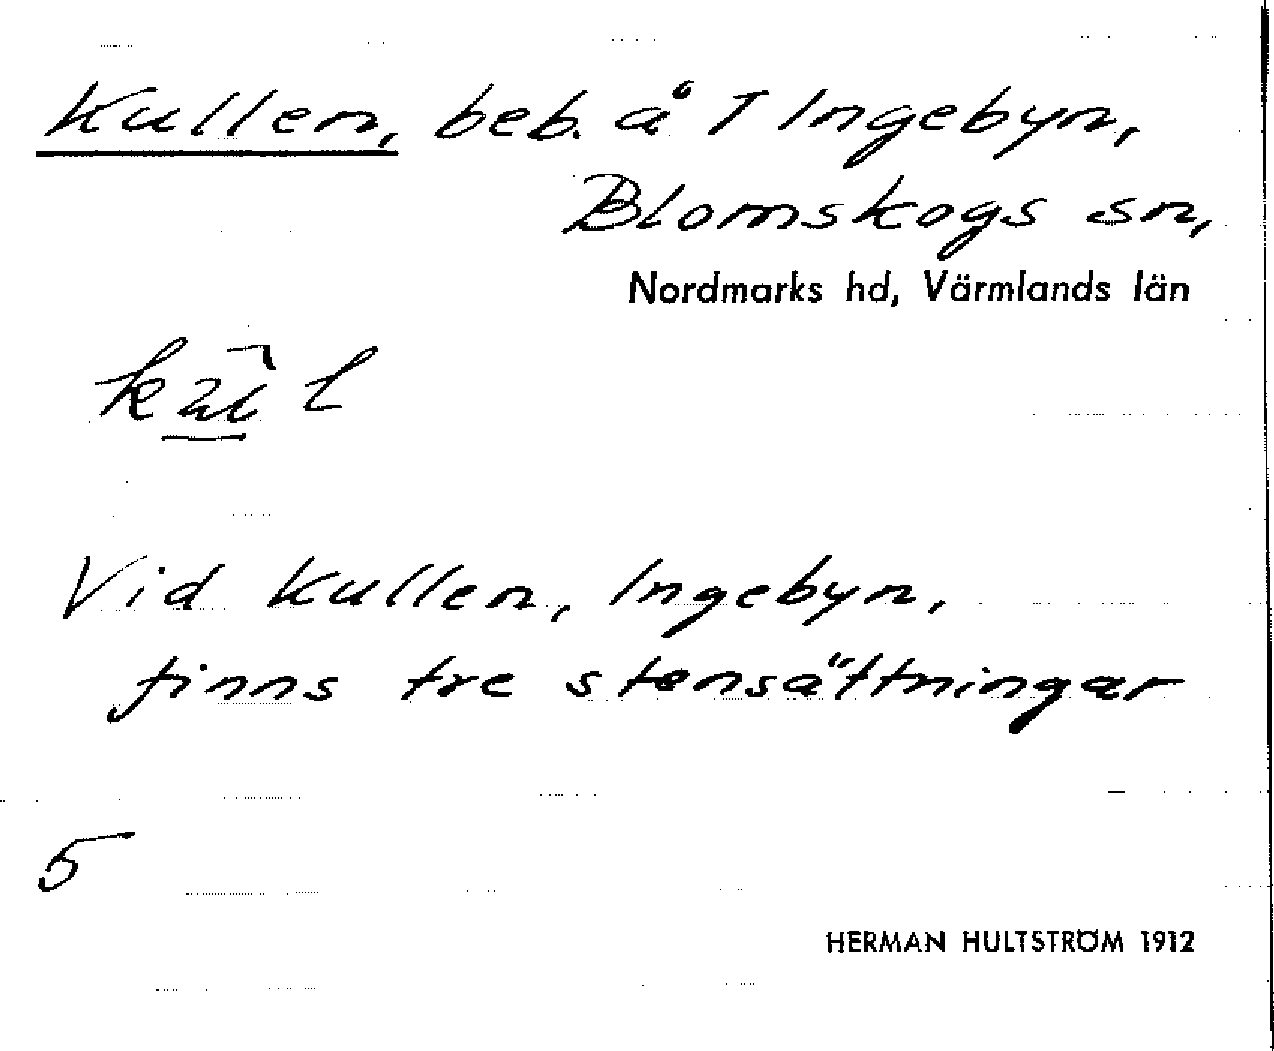 Kullen, beb. å T Ingebyn,
Blomskogs sn,
Nordmarks hd, Värmlands län
Vid Kullen, Ingebyn,
finns tre stensättningar
5
HERMAN HULTSTRÖM 1912